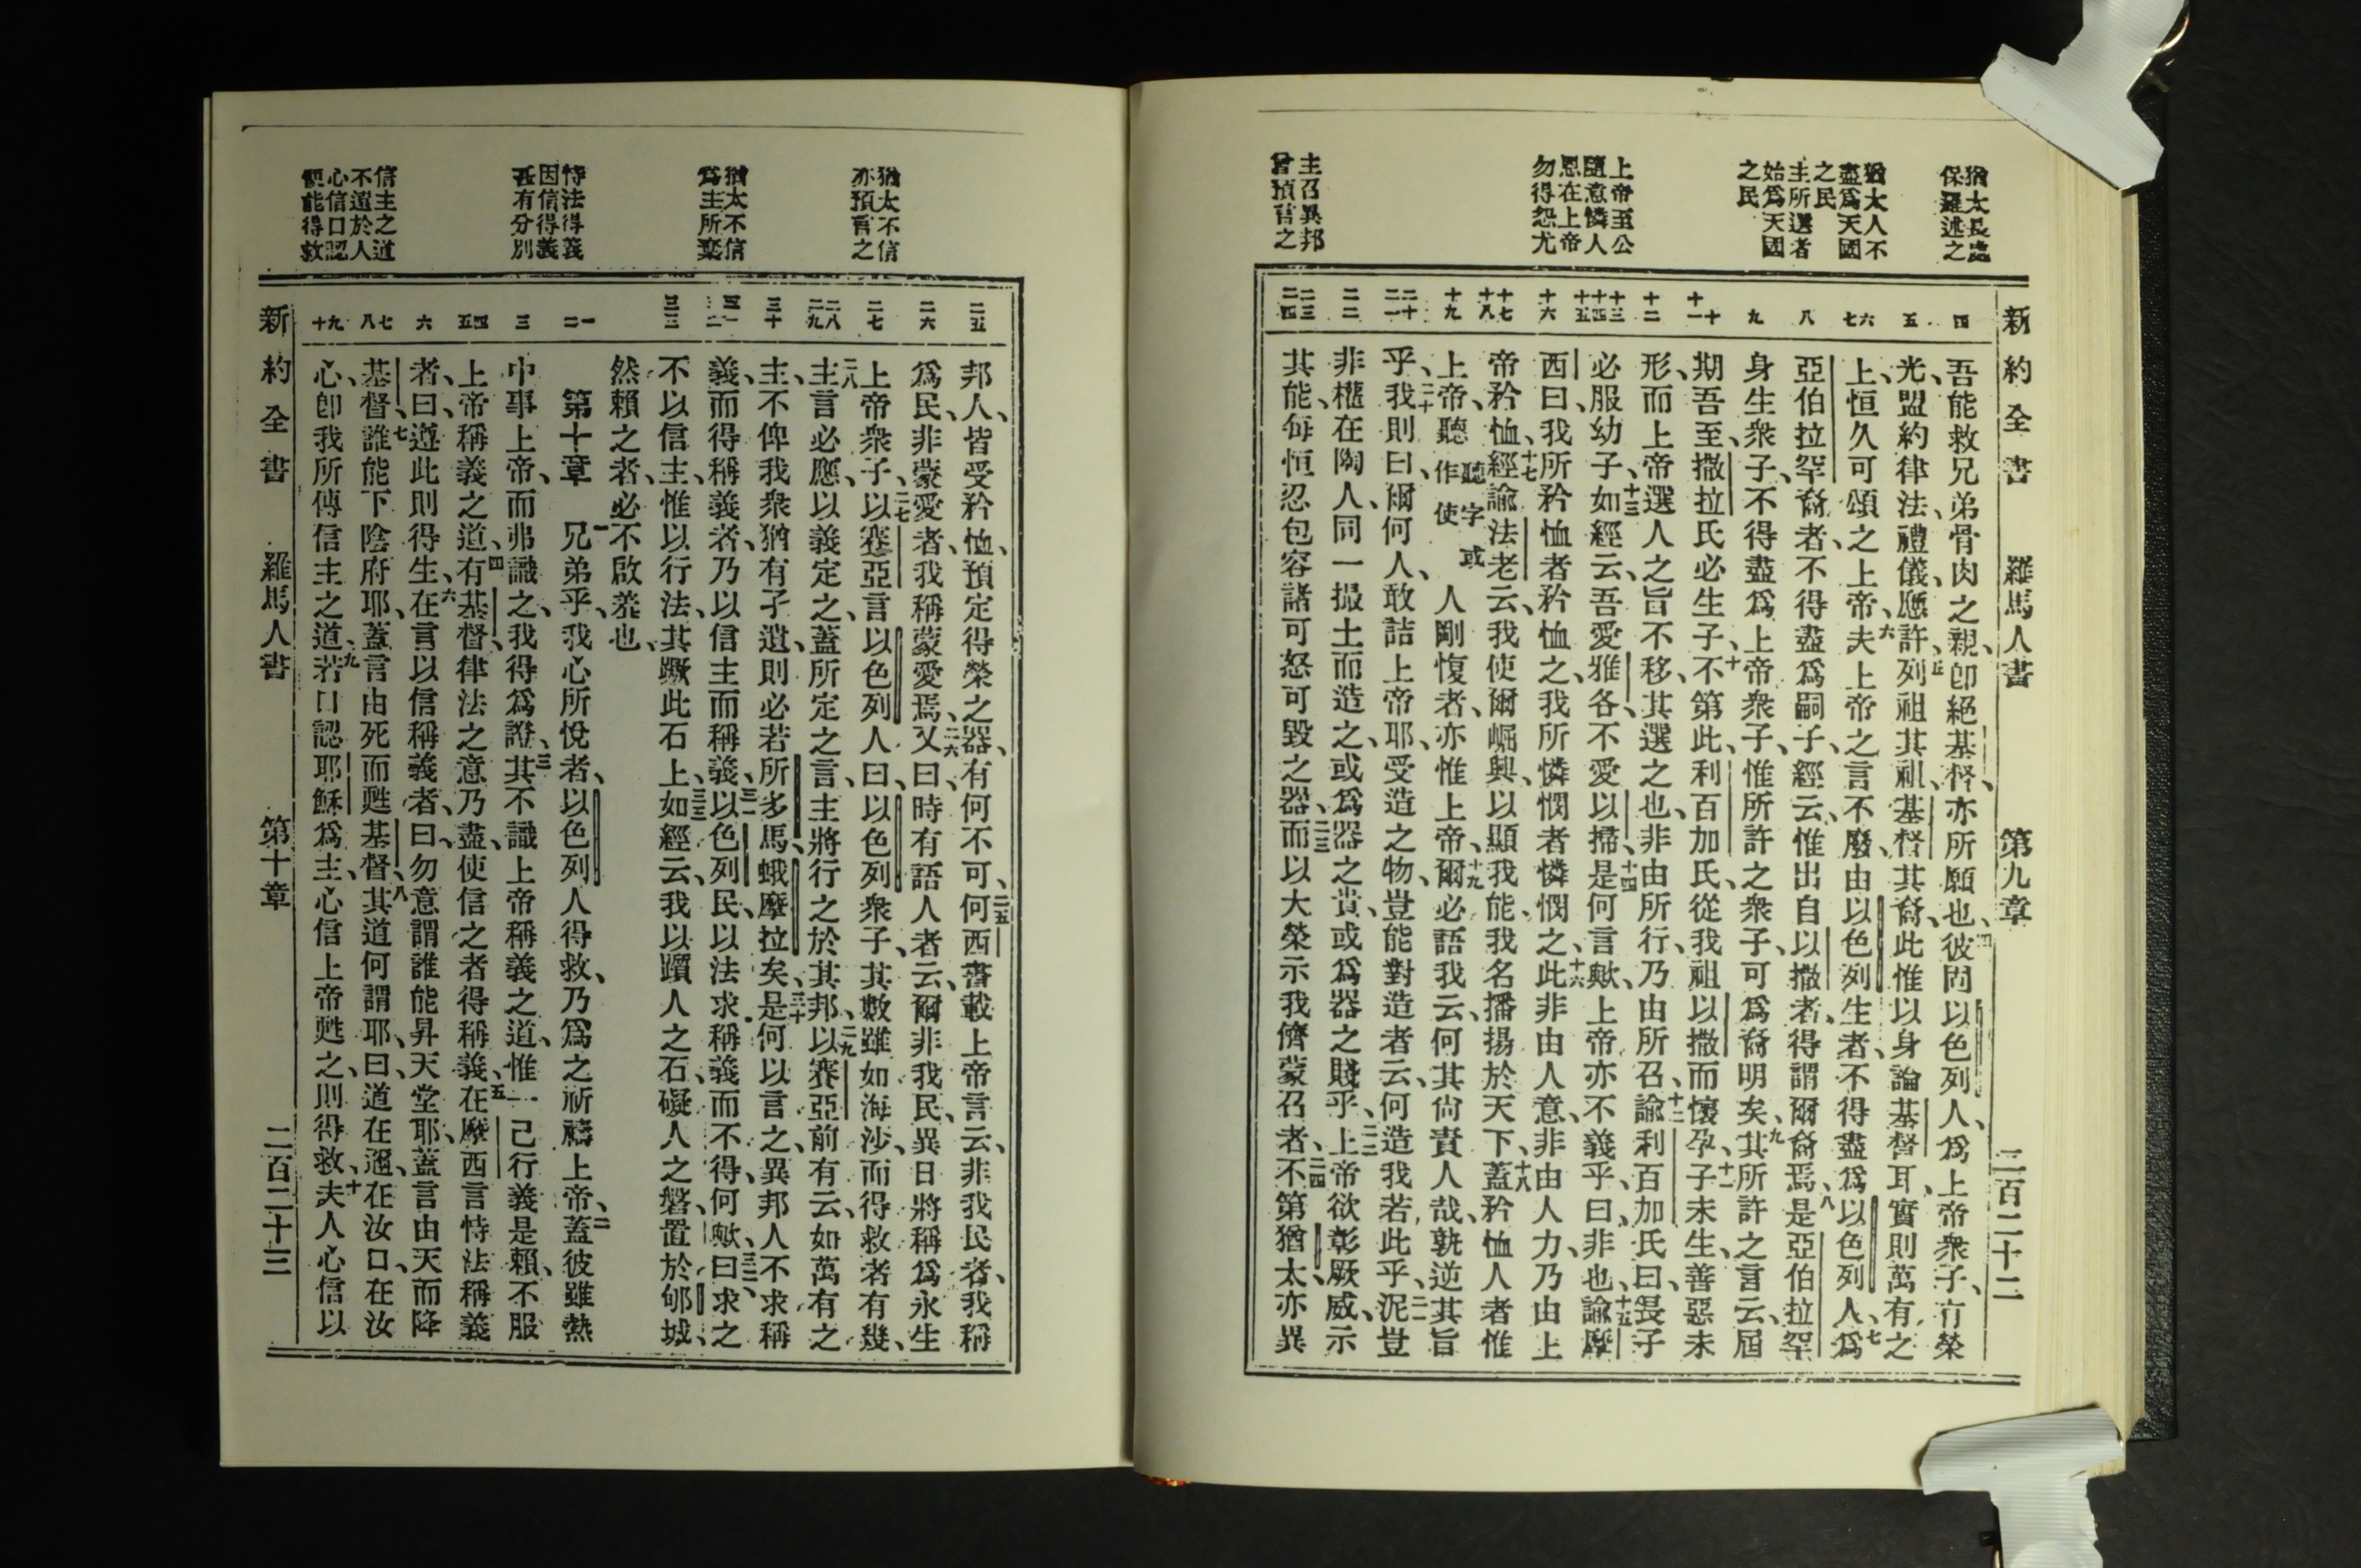 猶太長處
保羅述之
猶太人不
盡爲天國
之民
主所選者
始爲天國
之民
上帝至公
隨意憐人
恩在上帝
勿得怨尤
主召異邦
曾預言之
新約全書 羅馬人書 第九章 二百二十二
四 五 六 七 八 九 十 十一 十二 十三 十四 十五 十六 十七 十八 十九 二十 二一 二二 二三 二四
吾能救兄弟骨肉之親、卽絕基督、亦所願也、四彼固以色列人、爲上帝衆子、有榮
光、盟約律法、禮儀、應許、五列祖其祖、基督其裔、此惟以身論基督耳、實則萬有之
上、恒久可頌之上帝、六夫上帝之言不廢、由以色列生者、不得盡爲以色列人、七爲
亞伯拉罕裔者、不得盡爲嗣子、經云、惟出自以撒者、得謂爾裔焉、八是亞伯拉罕
身生衆子、不得盡爲上帝衆子、惟所許之衆子、可爲裔明矣、九其所許之言云、屆
期吾至、撒拉氏必生子、十不第此、利百加氏、從我祖以撒而懷孕、十一子未生、善惡未
形、而上帝選人之旨不移、其選之也、非由所行、乃由所召、十二諭利百加氏曰、長子
必服幼子、十三如經云、吾愛雅各、不愛以掃、十四是何言歟、上帝亦不義乎、曰、非也、十五諭摩
西曰、我所矜恤者矜恤之、我所憐憫者憐憫之、十六此非由人意、非由人力、乃由上
帝矜恤、十七經諭法老云、我使爾崛興、以顯我能、我名播揚於天下、十八蓋矜恤人者惟
上帝、聽聽字或作使人剛愎者、亦惟上帝、十九爾必語我云、何其尙責人哉、孰逆其旨
乎、二十我則曰、爾何人、敢詰上帝耶、受造之物、豈能對造者云、何造我若此乎、二一泥豈
非權在陶人、同一撮土而造之、或爲器之貴、或爲器之賤乎、二二上帝欲彰厥威、示
其能、每恒忍包容諸可怒可毀之器、二三而以大榮示我儕蒙召者、二四不第猶太、亦異
猶太不信
亦預言之
猶太不信
爲主所棄
恃法得義
因信得義
甚有分別
信主之道
不遠於人
心信口認
便能得救
二五 二六 二七 二八 二九 三十 三一 三二 三三 一 二 三 四 五 六 七 八 九 十
邦人、皆受矜恤、預定得榮之器、有何不可、二五何西書載上帝言云、非我民者、我稱
爲民、非蒙愛者、我稱蒙愛焉、二六又曰、時有語人者云、爾非我民、異日將稱爲永生
上帝衆子、二七以賽亞言以色列人曰、以色列衆子、其數雖如海沙、而得救者有幾、
二八主言必應、以義定之、蓋所定之言、主將行之於其邦、二九以賽亞前有云、如萬有之
主、不俾我衆猶有孑遺、則必若所多馬、蛾摩拉矣、三十是何以言之、異邦人不求稱
義、而得稱義者、乃以信主而稱義、三一以色列民、以法求稱義而不得、何歟、三二曰、求之
不以信主、惟以行法、其蹶此石上、三三如經云、我以躓人之石、礙人之磐、置於郇城、
然賴之者、必不啟羞也、
第十章 一兄弟乎、我心所悅者、以色列人得救、乃爲之祈禱上帝、二蓋彼雖熱
中事上帝、而弗識之、我得爲證、三其不識上帝稱義之道、惟一己行義是賴、不服
上帝稱義之道、四有基督、律法之意乃盡、使信之者得稱義、五在摩西言恃法稱義
者、曰、遵此則得生、六在言以信稱義者、曰、勿意謂誰能昇天堂耶、蓋言由天而降
基督、七誰能下陰府耶、蓋言由死而甦基督、八其道何謂耶、曰、道在邇、在汝口、在汝
心、卽我所傳信主之道、九若口認耶穌爲主、心信上帝甦之、則得救、十夫人心信以
新約全書 羅馬人書 第十章 二百二十三